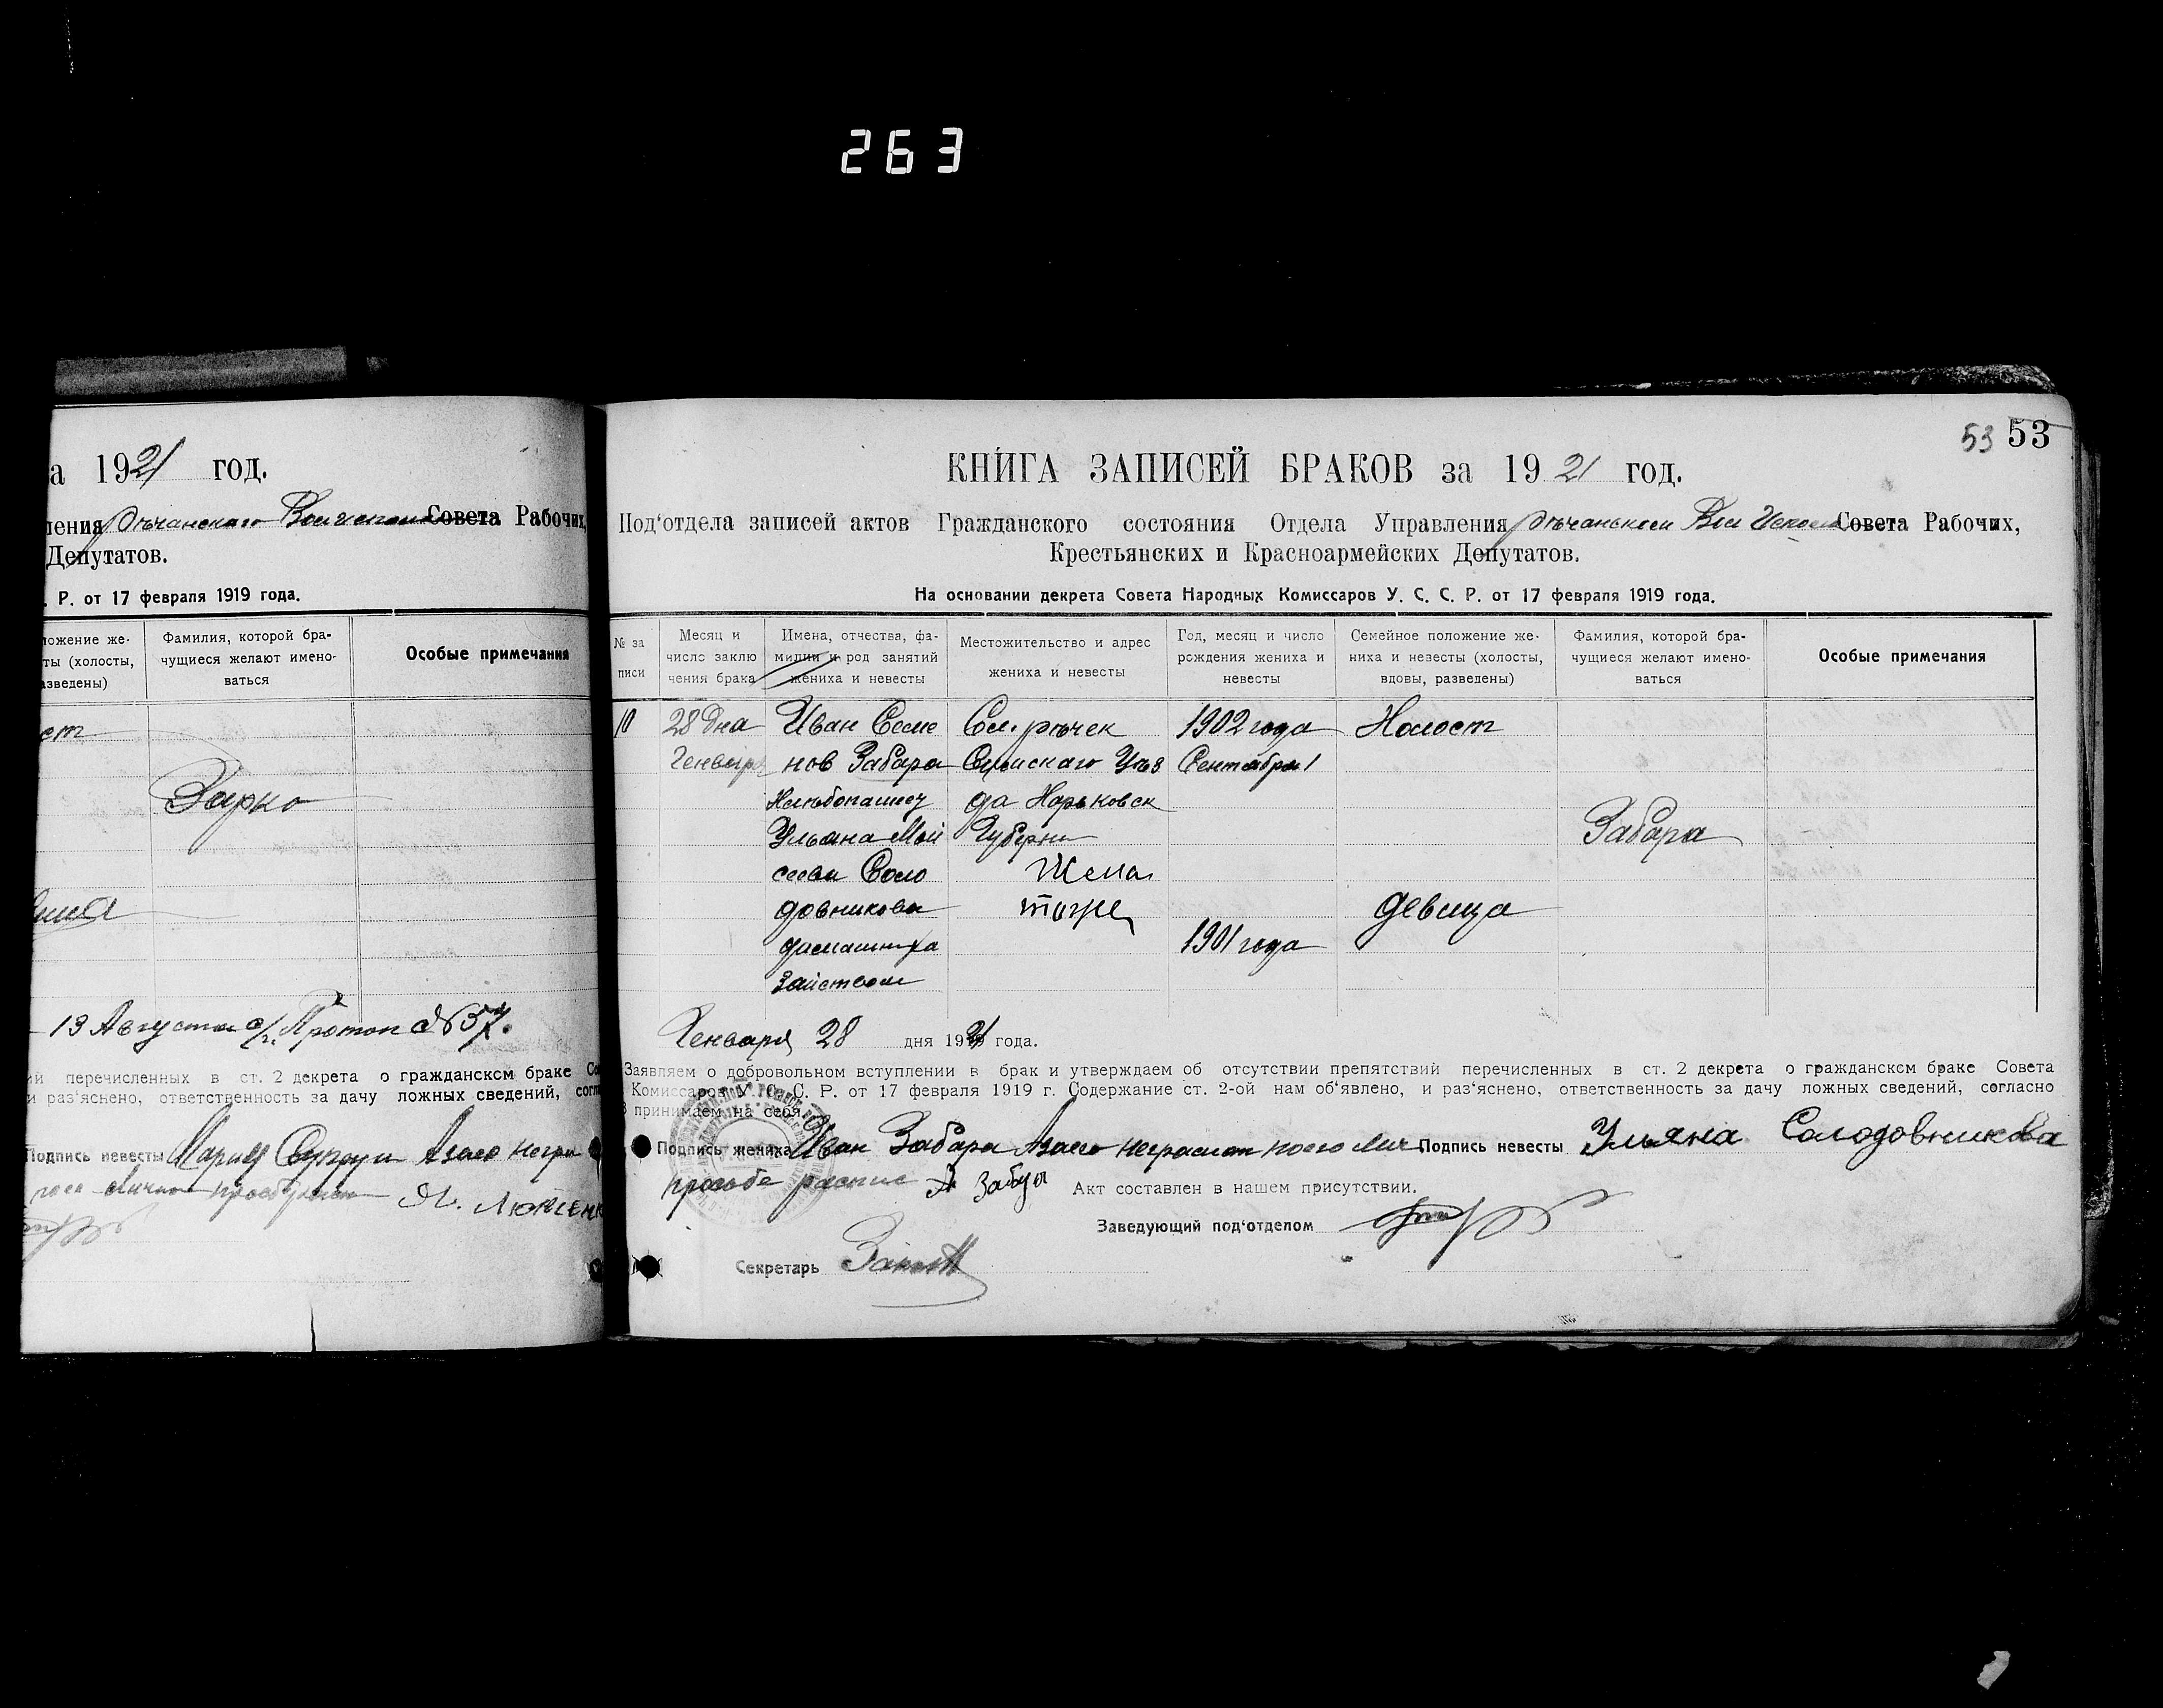 263
а 1921 год.
ления Речанского Совета Рабочих,
Депутатов.
. Р. от 17 февраля 1919 года.
ложение же-
ты (холосты,
азведены)
Фамилия, которой бра-
чущиеся желают имено-
ваться
Особые примечания
ст
Зарко
13 Августа с/г. Протоп №57.
ий перечисленных в ст. 2 декрета о гражданском браке Со
и раз‘яснено, ответственность за дачу ложных сведений, согла
Подпись невесты Мария Азаею негра
53 53
КНИГА ЗАПИСЕЙ БРАКОВ за 1921 год.
Под‘отдела записей актов Гражданского состояния Отдела Управления Вол Совета Рабочих,
Крестьянских и Красноармейских Депутатов.
На основании декрета Совета Народных Комиссаров У. С. С. Р. от 17 февраля 1919 года.
№ за
писи
Месяц и
число заклю
чения брака
Имена, отчества, фа-
милии и род занятий
жениха и невесты
Местожительство и адрес
жениха и невесты
Год, месяц и число
рождения жениха и
невесты
Семейное положение же-
ниха и невесты (холосты,
вдовы, разведены)
Фамилия, которой бра-
чущиеся желают имено-
ваться
Особые примечания
10 28 дня Иван Семе Сел. речек 1902 года Холост
Генваря нов Забара Сумскаго Уез Сентября 1
Хлебопашец да Харьковск
Ульяна Мой Губерни Забара
сеева Соло Жена
довникова тоже девица
1901 года
Генваря 28 дня 1921 года.
Заявляем о добровольном вступлении в брак и утверждаем об отсутствии препятствий перечисленных в ст. 2 декрета о гражданском браке Совета
Комиссаров У. С. С. Р. от 17 февраля 1919 г. Содержание ст. 2-ой нам об‘явлено, и раз‘яснено, ответственность за дачу ложных сведений, согласно
3 принимаем на себя.
Подпись жениха Иван Забара Азаею неграмот Подпись невесты Ульяна Солодовникова
прозбе распис
Акт составлен в нашем присутствии.
Заведующий под‘отделом
Секретарь